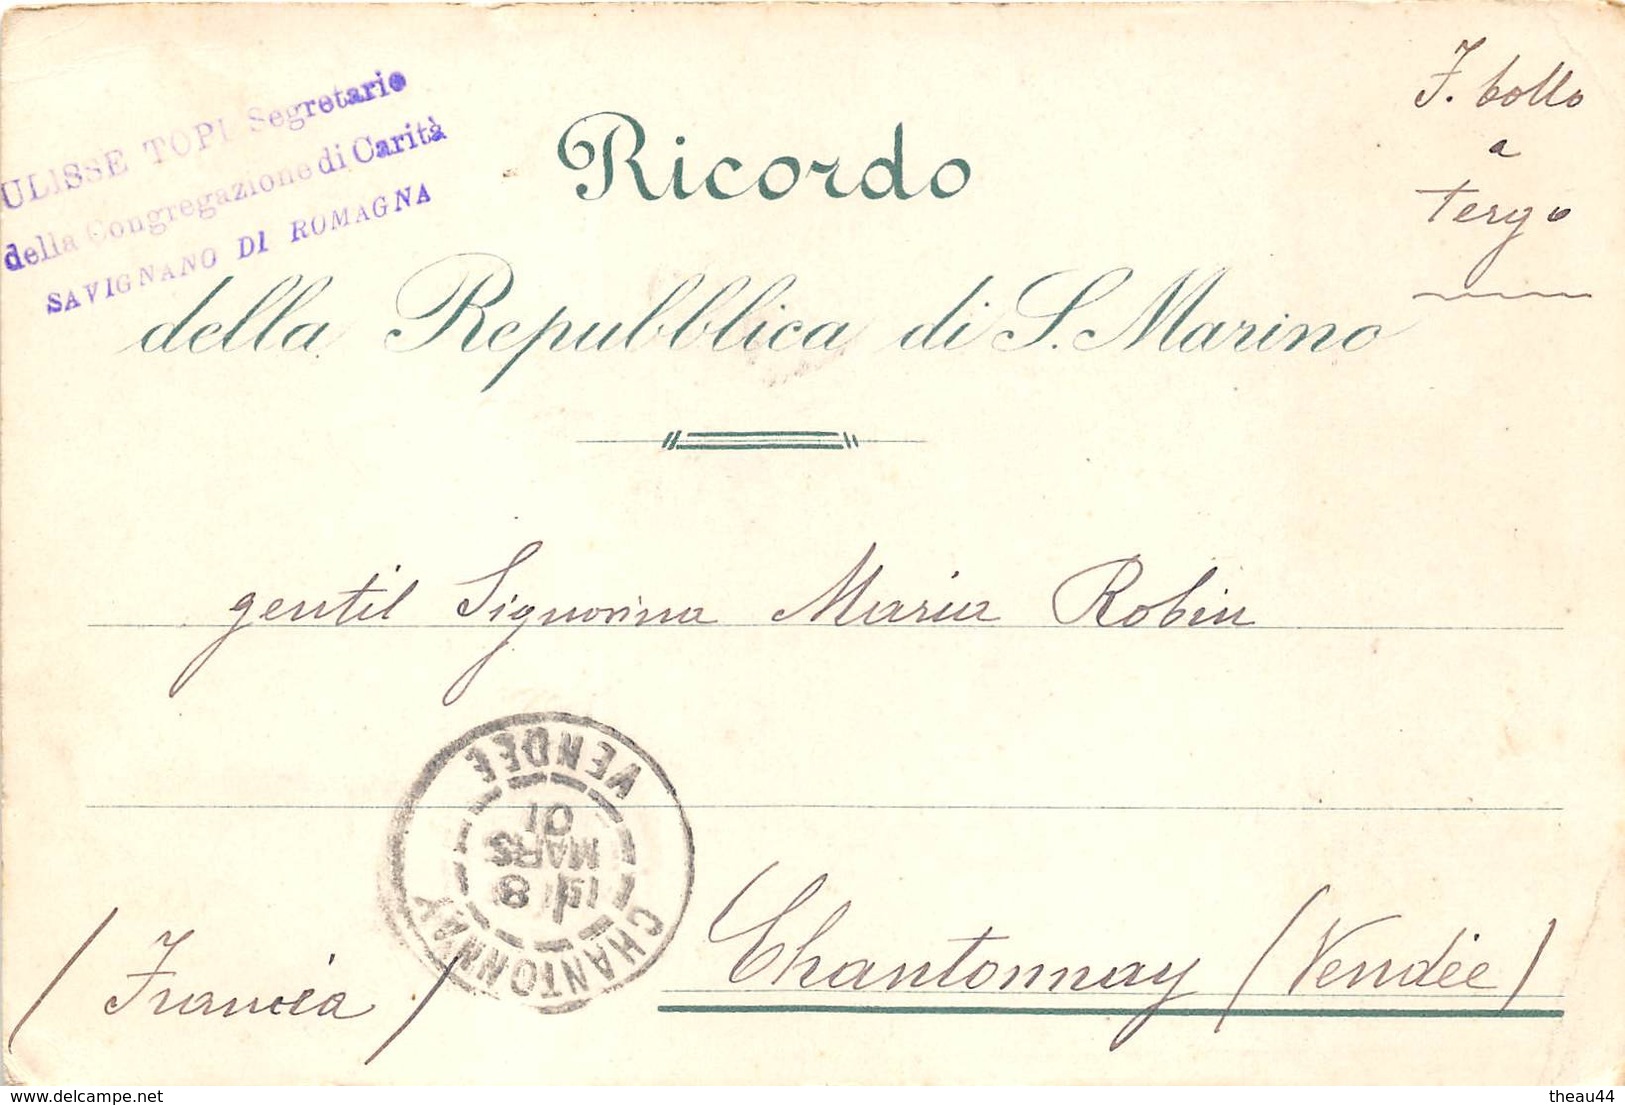 ULISSE TOPI Segretario
della Congregazione di Carità
SAVIGNANO DI ROMAGNA
Ricordo
della Repubblica di S. Marino
F. bollo
a
tergo
gentil Signorina Maria Robin
VENDÉE
01
MARS
8
CHANTONNAY
Chantonnay (Vendée)
(Francia)
www.delcampe.net
theau44